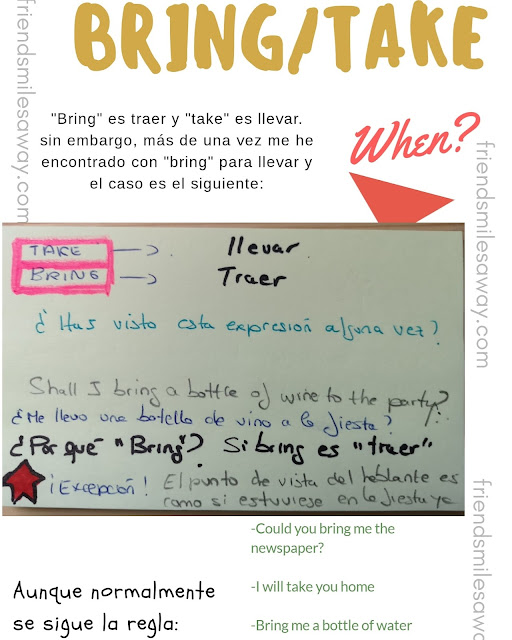 BRING/TAKE
"Bring" es traer y "take" es llevar.
sin embargo, más de una vez me he
encontrado con "bring" para llevar y
el caso es el siguiente:
When?
friendsmilesaway.com
friendsmilesaway.com
TAKE → llevar
BRING → Traer
¿Has visto esta expresión alguna vez?
Shall I bring a bottle of wine to the party?
¿Me llevo una botella de vino a la fiesta?
¿Por qué "Bring"? Si bring es "traer"
¡Excepción! El punto de vista del hablante es
como si estuviese en la fiesta ya
friendsmilesaway
-Could you bring me the
newspaper?
-I will take you home
-Bring me a bottle of water
Aunque normalmente
se sigue la regla: